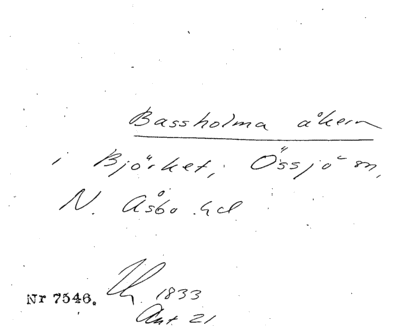 Bassholma åkern
i Björket, Össjö sn,
N. Åsbo hd
Nr 7546. 1833
Ant. 21